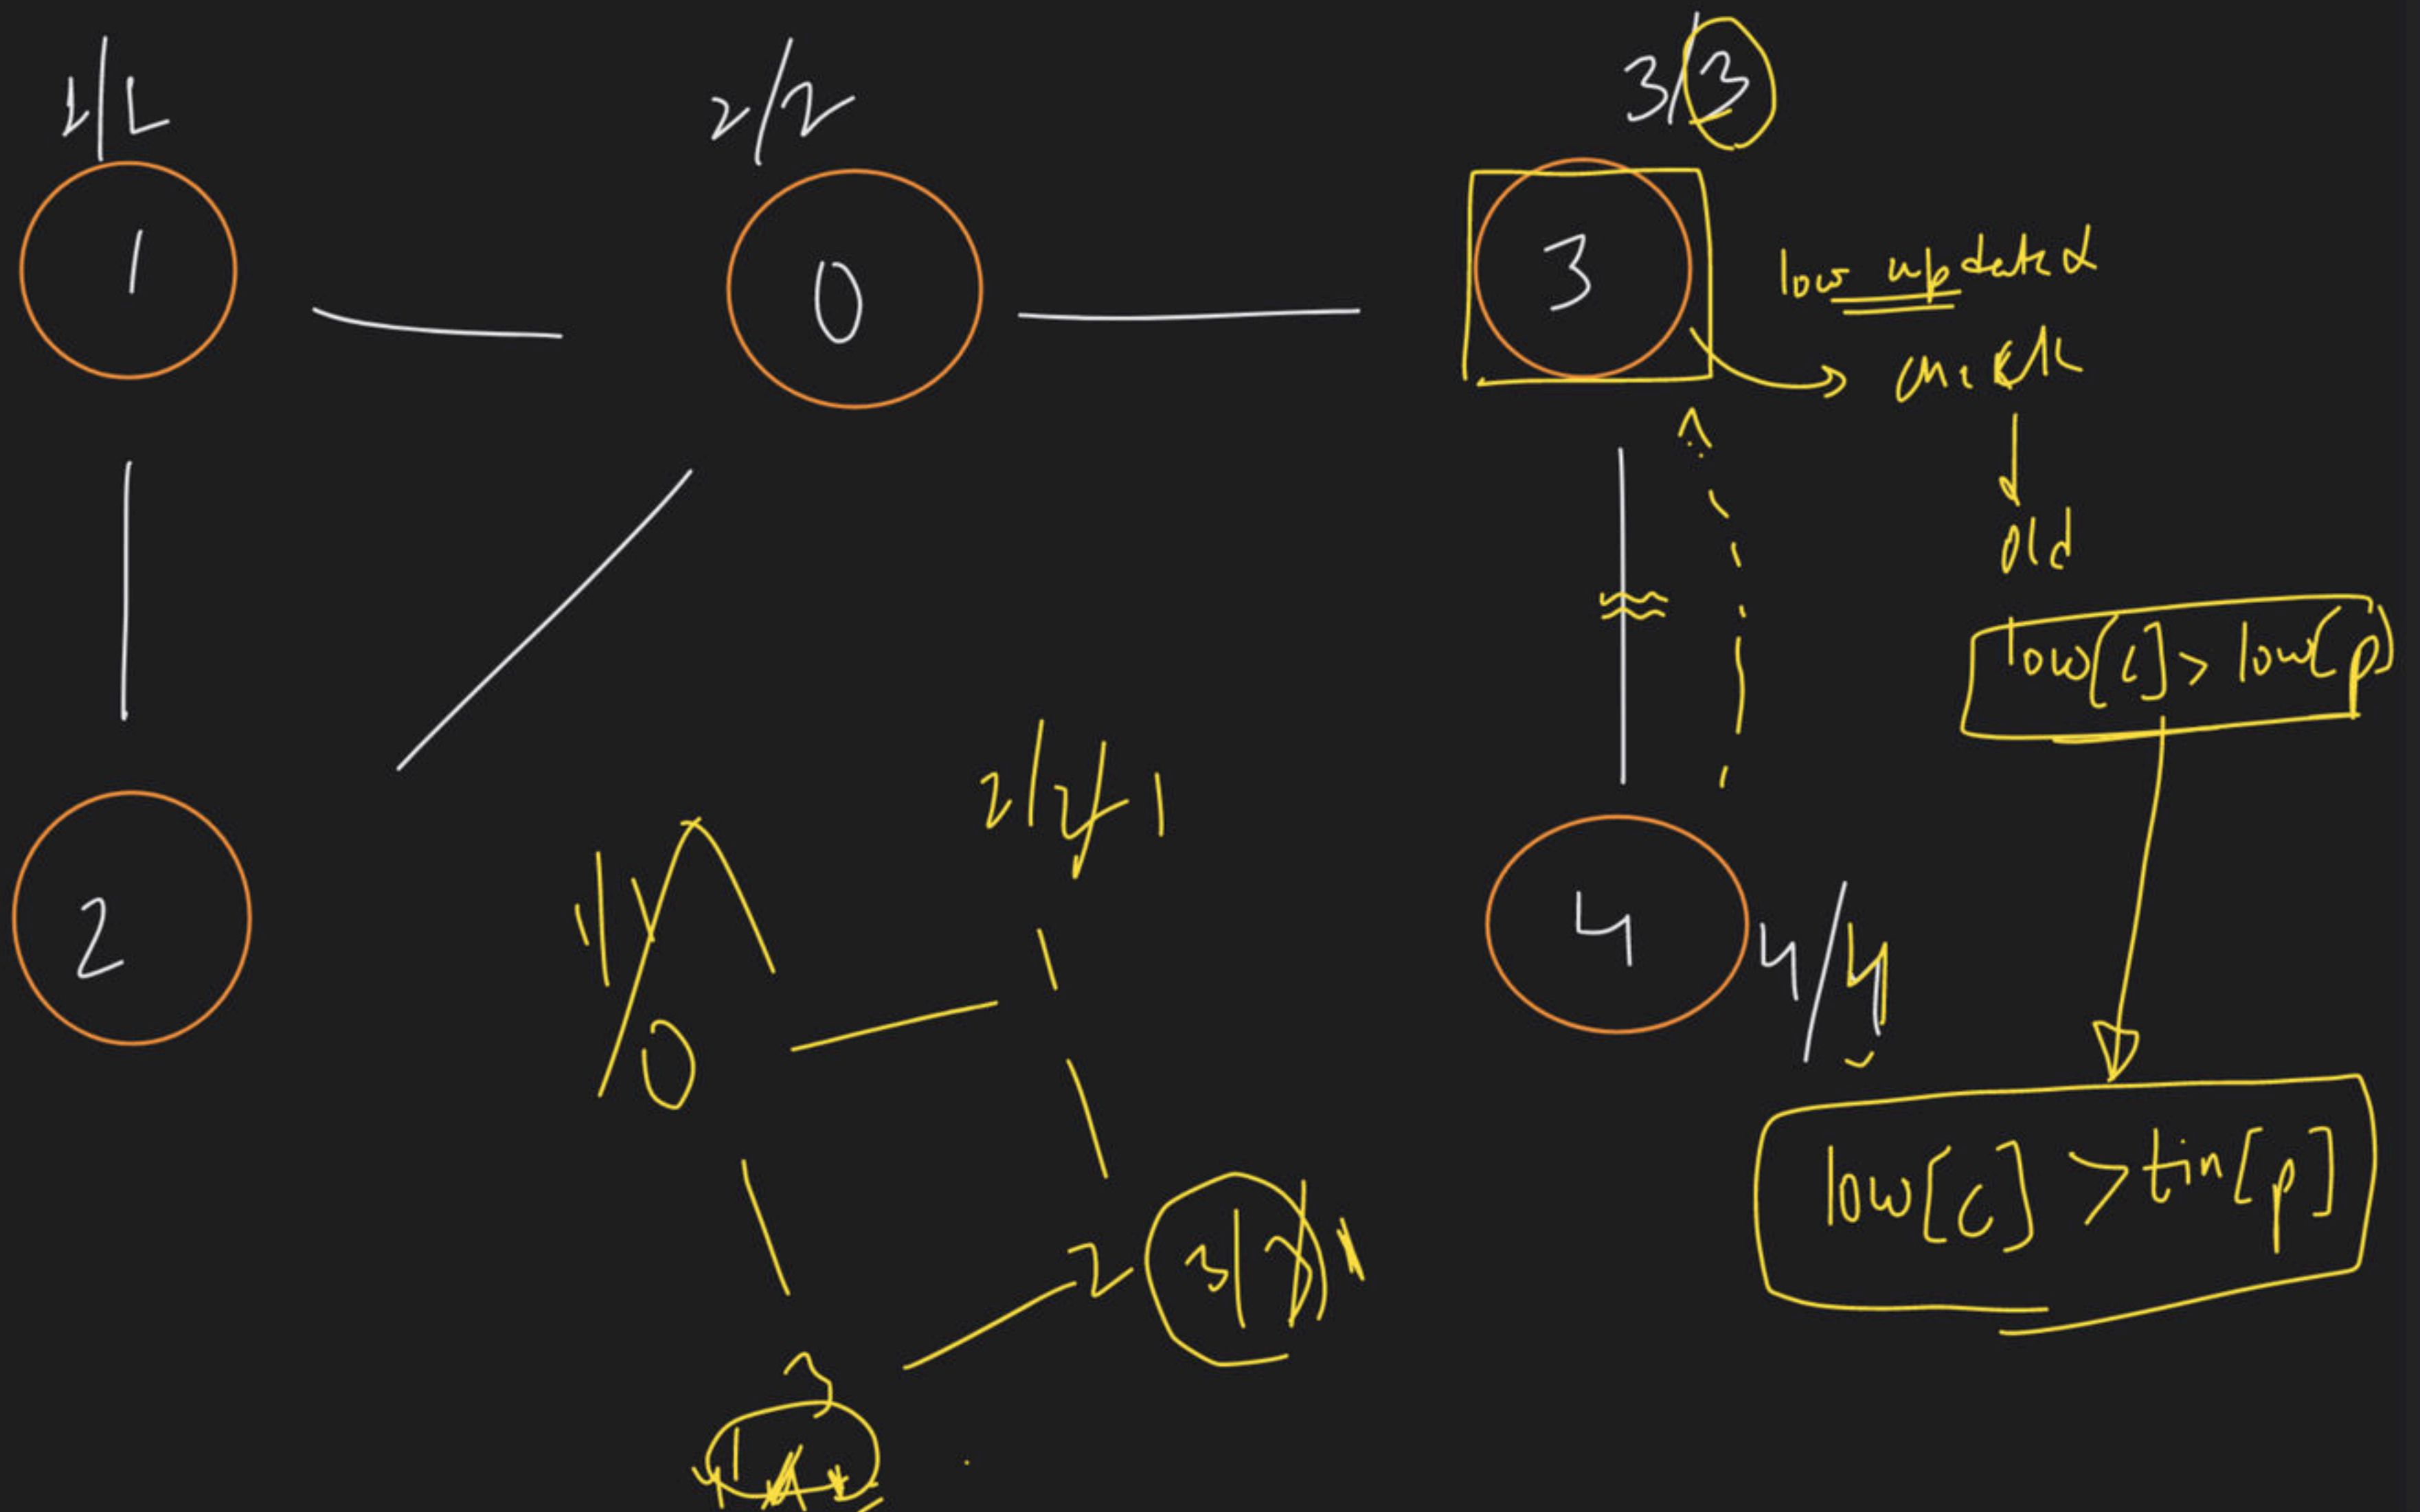 1/1
2/2
3/3
1
0
3
low updated
check
old
low[c] > low[p]
2
4
4/4
2/2 1
1/1
0
low[c] > tin[p]
2
3/3 1
3